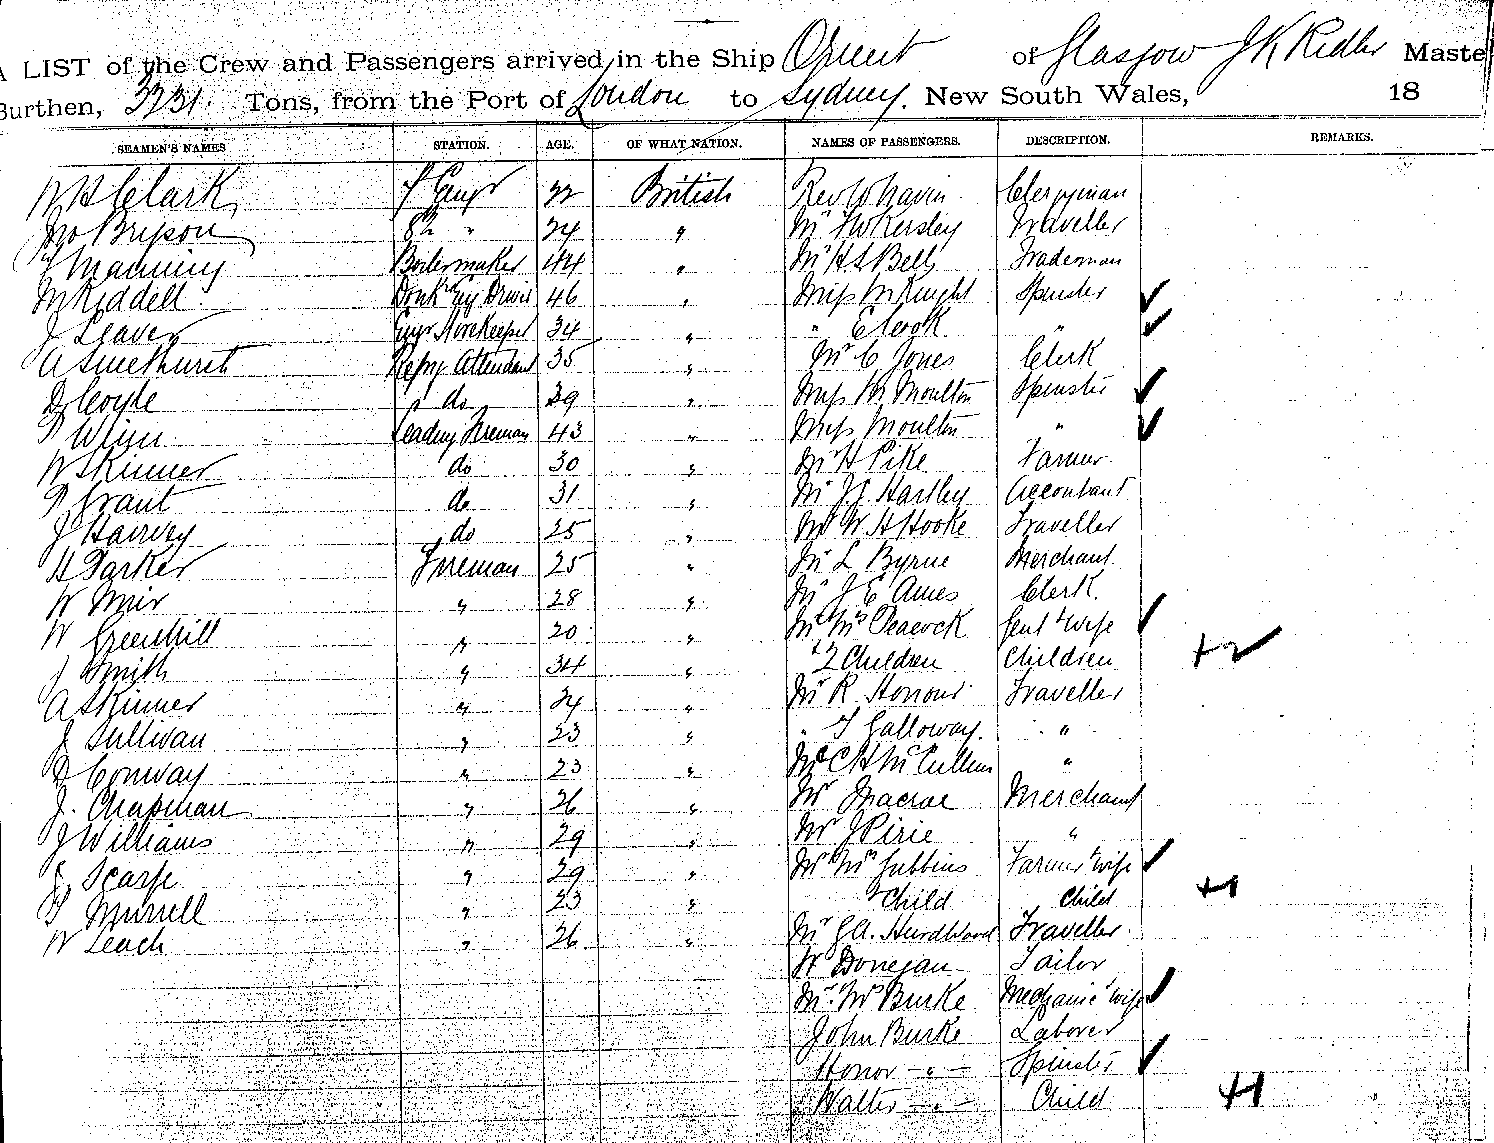 A LIST of the Crew and Passengers arrived in the Ship Orient of Glasgow J K Ridler Maste
Burthen, 3231 Tons, from the Port of London to Sydney. New South Wales, 18
SEAMEN'S NAMES STATION. AGE. OF WHAT NATION. NAMES OF PASSENGERS. DESCRIPTION. REMARKS.
W H Clark 7 Engr 22 British Rev W Navin Clergyman
Jno Bryson 8th " 24 " Mr F W Kersley Traveller
J Manning Boilermaker 44 " Mr H S Bell Tradesman
M Riddell Donk Eng Driver 46 " Miss M Knight Spinster
J Leaver Engr Storekeeper 34 " " E Cook "
A Smethurst Refrg Attendant 35 " Mr C Jones Clerk
D Coyle do 39 " Miss M Moulton Spinster
P Winn Leading Fireman 43 " Miss Moulton "
W Skinner do 30 " Mr H Pike Farmer
P Grant do 31 " Mr J. J. Hartley Accountant
J Harvey do 25 " Mr W H Hooke Traveller
H Parker Fireman 25 " Mr L Byrne Merchant
W Muir " 28 " Mr J E Ames Clerk.
W Greenhill " 20 " Mr Mrs Peacock Gent & wife
J Smith " 34 " & 2 Children Children +2
A Skinner " 24 " Mr R Honour Traveller
J Sullivan " 23 " " T Galloway. "
D Conway " 23 " Mr C H McCullum "
J. Chapman " 26 " Mr Macrae Merchant
J Williams " 29 " Mr J Pirie "
J. Scarfe " 29 " Mr Mrs Gubbins Farmer & wife
T Murrell " 23 " Child Child +1
W Leach " 26 " Mr G A. Hurdwood Traveller
W Donegan Tailor
Mr. Mrs Burke Mechanic & wife
John Burke Laborer
Honor " Spinster
Walter " Child +1